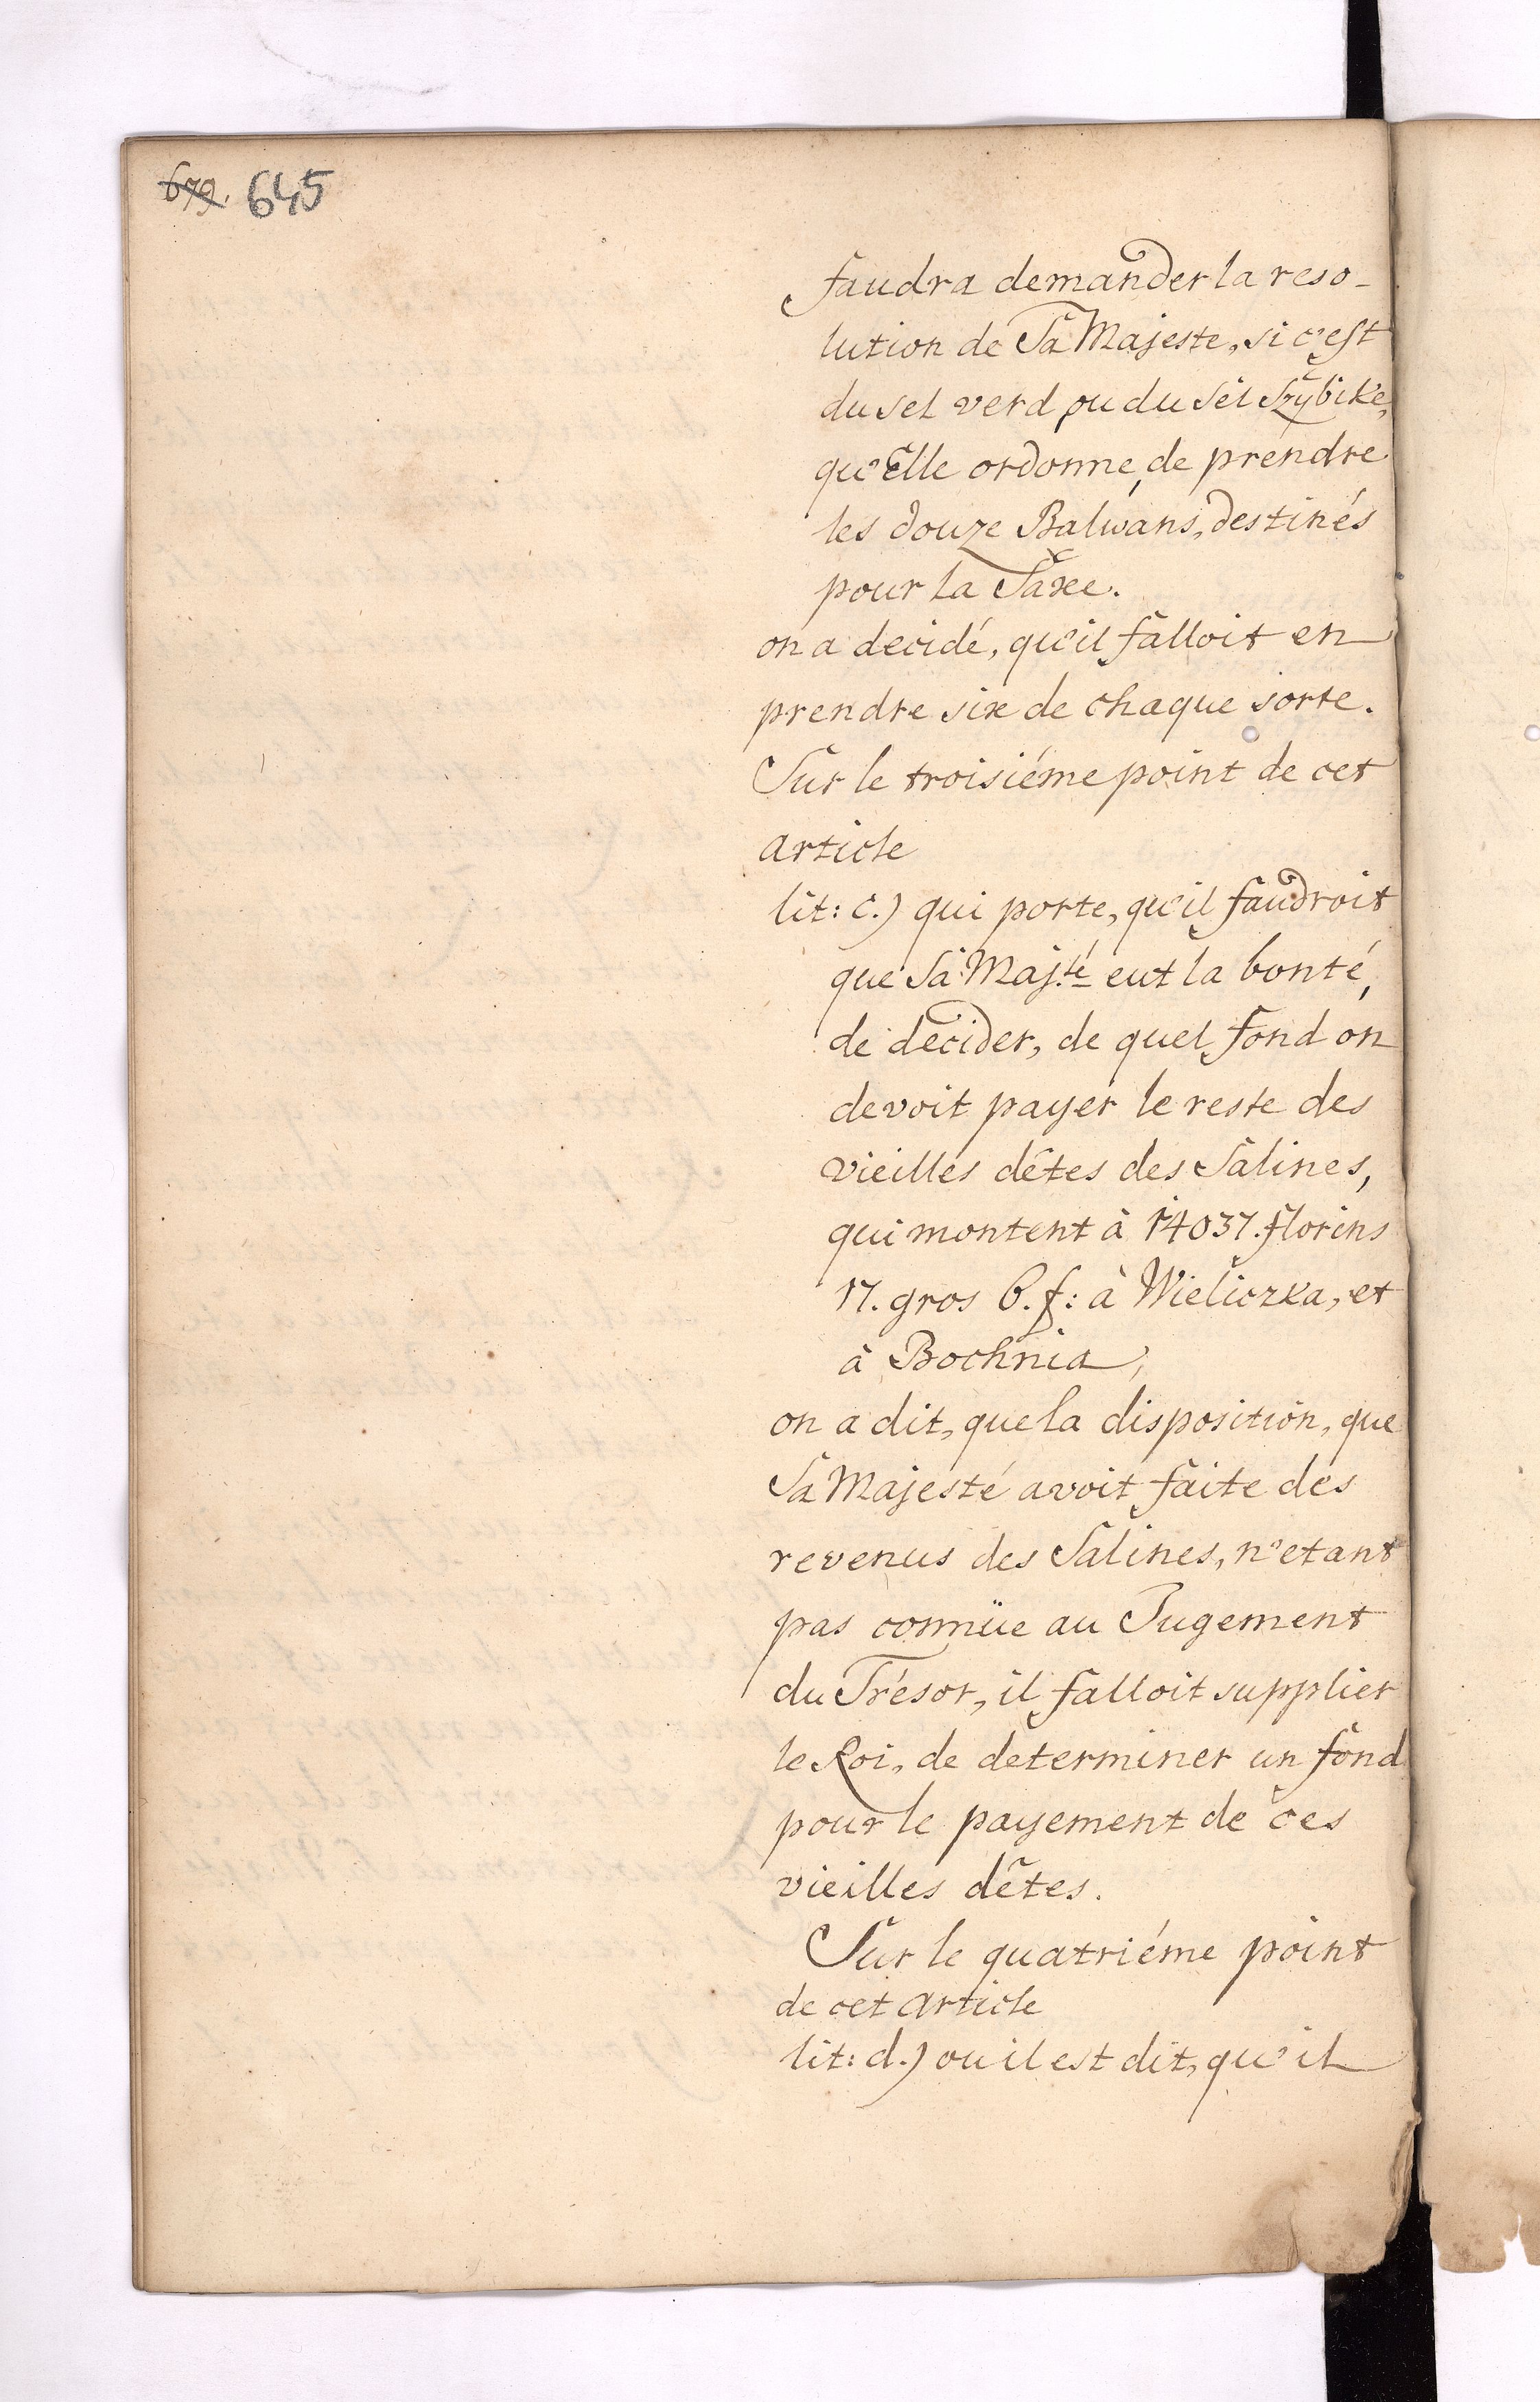 679. 645
faudra demander la reso-
lution de Sa Majeste, si c'est
du sel verd ou du sel Szÿbike,
qu'Elle ordonne, de prendre
les douze Balwans, destinés
pour la Saxe.
on a decidé, qu'il falloit en
prendre six de chaque sorte.
Sur le troisiéme point de cet
article
lit: c.) qui porte, qu'il faudroit
que Sa Maj.té eut la bonté,
de decider, de quel fond on
devoit payer le reste des
vieilles dêtes des Salines,
qui montent à 14037. florins
17. gros 6. f: à Wieliczka, et
à Bochnia,
on a dit, que la disposition, que
Sa Majesté avoit faite des
revenus des Salines, n'etant
pas connüe au Jugement
du Trésor, il falloit supplier
le Roi, de determiner un fond
pour le payement de ces
vieilles dêtes.
Sur le quatriéme point
de cet article
lit: d.) ou il est dit, qu'il